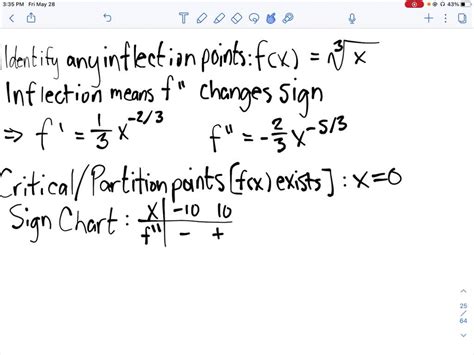 3:35 PM Fri May 28
43%
Identify any inflection points: f(x) = ∛x
Inflection means f" changes sign
⇒ f' = 1/3 x^-2/3 f" = -2/3 x^-5/3
Critical/Partition points [f(x) exists] : x=0
Sign Chart : x | -10 10
f" | - +
25
/
64